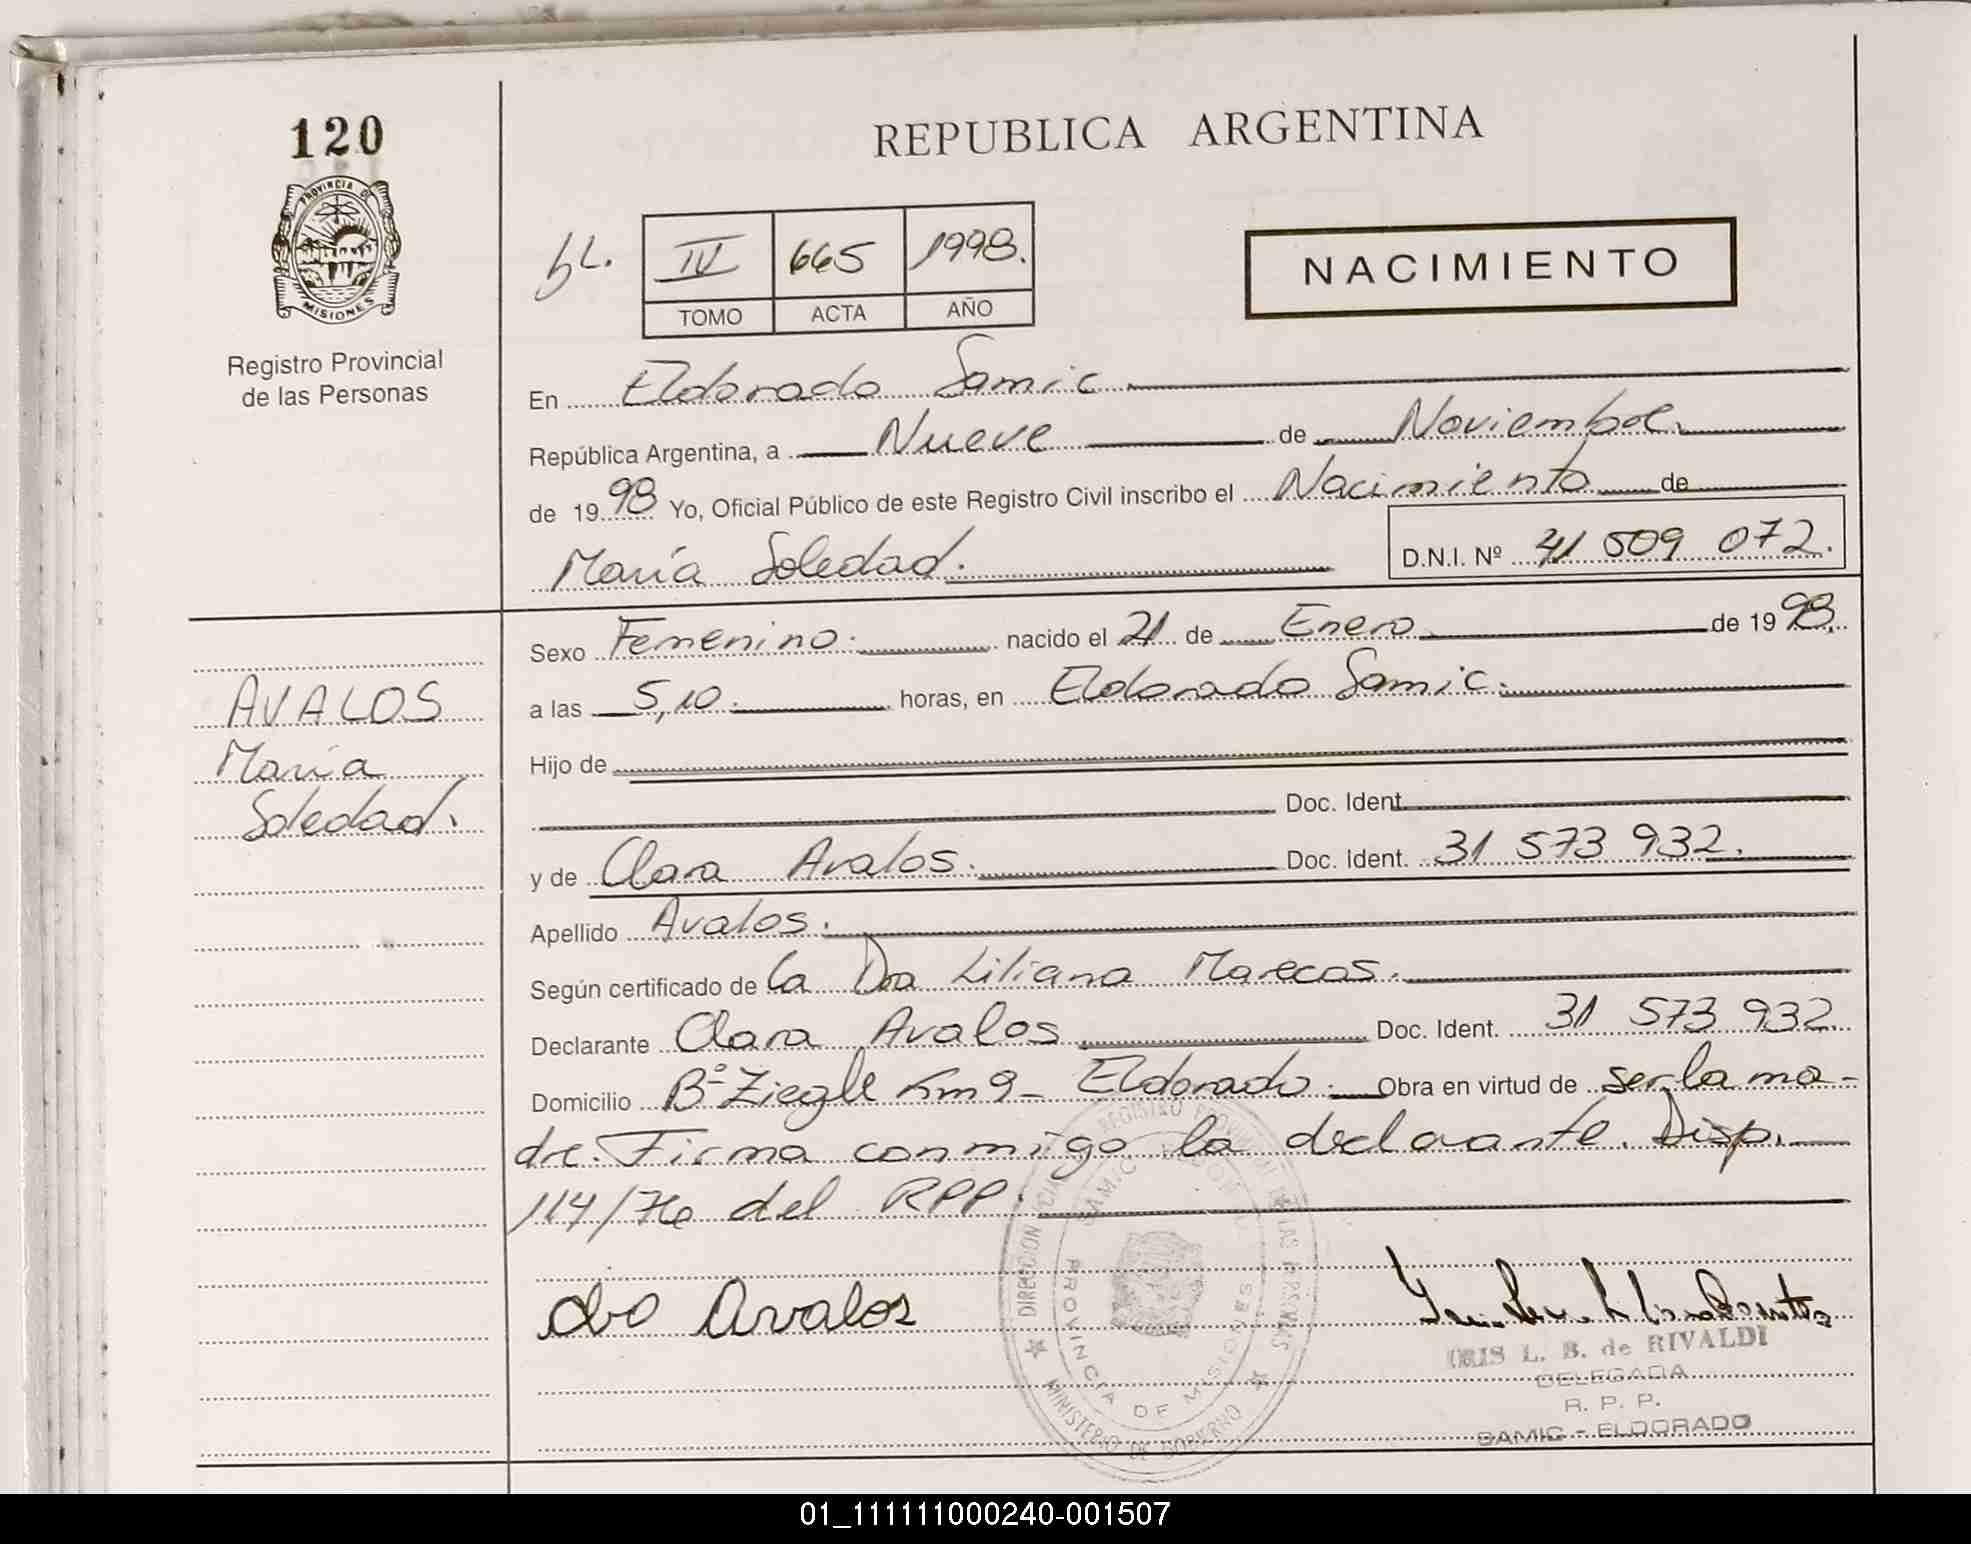 120
PROVINCIA DE
MISIONES
Registro Provincial
de las Personas
REPUBLICA ARGENTINA
NACIMIENTO
IV 665 1998.
TOMO ACTA AÑO
En Eldorado Samic
República Argentina, a Nueve de Noviembre
de 1998 Yo, Oficial Público de este Registro Civil inscribo el Nacimiento de
María Soledad. D.N.I. Nº 41 509 072.
Sexo Femenino. nacido el 21 de Enero de 1998.
a las 5,10. horas, en Eldorado Samic.
Hijo de
Doc. Ident.
y de Clara Avalos. Doc. Ident. 31 573 932.
Apellido Avalos.
Según certificado de la Dra Liliana Marecos.
Declarante Clara Avalos Doc. Ident. 31 573 932
Domicilio Bº Ziegle Km 9- Eldorado. Obra en virtud de ser la ma-
dre. Firma conmigo la declarante. Disp.
114/76 del RPP.
AVALOS
María
Soledad.
Avalos
IRIS L. B. de RIVALDI
DELEGADA
R. P. P.
SAMIC - ELDORADO
DIRECCION REGISTRO PROVINCIAL DE LAS PERSONAS
MINISTERIO DE GOBIERNO
PROVINCIA DE MISIONES
01_111111000240-001507